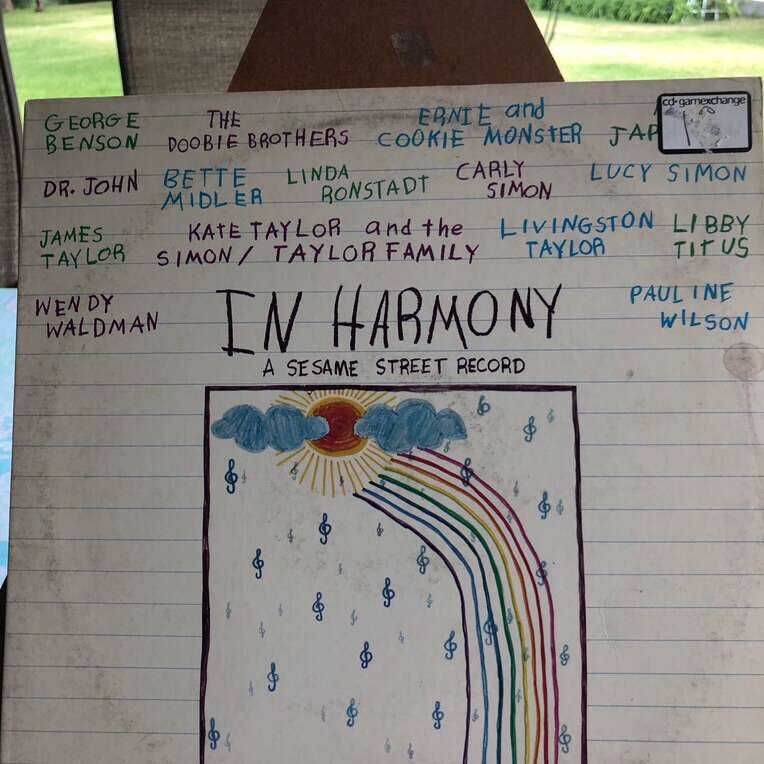 GEORGE THE ERNIE and cd-gamexchange
BENSON DOOBIE BROTHERS COOKIE MONSTER JAP
DR. JOHN BETTE LINDA CARLY LUCY SIMON
MIDLER RONSTADT SIMON
JAMES KATE TAYLOR and the LIVINGSTON LIBBY
TAYLOR SIMON / TAYLOR FAMILY TAYLOR TITUS
WENDY IN HARMONY PAULINE
WALDMAN WILSON
A SESAME STREET RECORD